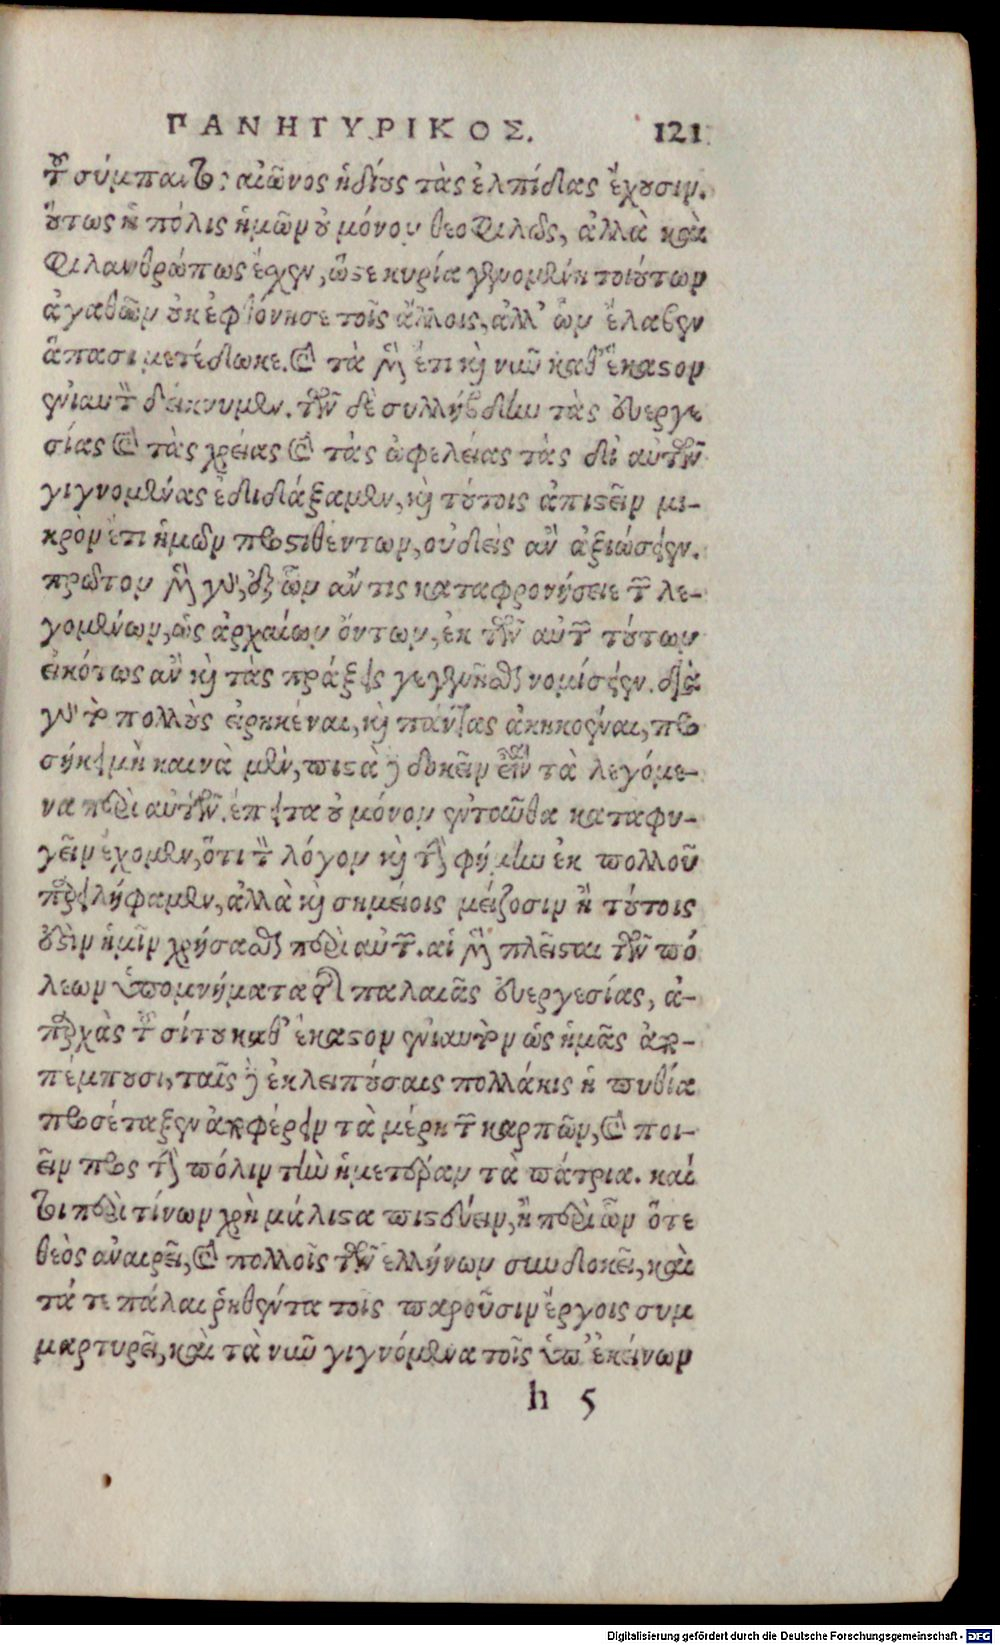 ΠΑΝΗΓΥΡΙΚΟΣ. 121
τοῦ σύμπαντος αἰῶνος ἡδίους τὰς ἐλπίδας ἔχουσιν.
οὕτως ἡ πόλις ἡμῶν οὐ μόνον θεοφιλῶς, ἀλλὰ καὶ
φιλανθρώπως ἔχεν, ὥστε κυρία γενομένη τοιούτων
ἀγαθῶν οὐκ ἐφθόνησε τοῖς ἄλλοις, ἀλλ' ὧν ἔλαβεν
ἅπασι μετέδωκε. καὶ τὰ μὲν ἔτι καὶ νῦν καθ' ἕκαστον
ἐνιαυτὸν δείκνυμεν. τῶν δὲ συλλήβδην τὰς εὐεργε
σίας καὶ τὰς χρείας καὶ τὰς ὠφελείας τὰς δι' αὐτῶν
γιγνομένας ἐδιδάξαμεν, καὶ τούτοις ἀπιστεῖν μι-
κρὸν ἔτι ἡμῶν προστιθέντων, οὐδεὶς ἂν ἀξιώσειεν.
πρῶτον μὲν γὰρ, ἐξ ὧν ἄν τις καταφρονήσειε τῶν λε-
γομένων, ὡς ἀρχαίων ὄντων, ἐκ τῶν αὐτῶν τούτων
εἰκότως ἂν καὶ τὰς πράξεις γεγενῆσθαι νομίσειεν. διὰ
γὰρ τὸ πολλοὺς εἰρηκέναι, καὶ πάντας ἀκηκοέναι, προ
σήκει μὴ καινὰ μὲν, πιστὰ δὲ δοκεῖν εἶναι τὰ λεγόμε-
να περὶ αὐτῶν. ἔπειτα οὐ μόνον ἐνταῦθα καταφυ-
γεῖν ἔχομεν, ὅτι τὸν λόγον καὶ τὴν φήμην ἐκ πολλοῦ
παρειλήφαμεν, ἀλλὰ καὶ σημείοις μείζοσιν ἢ τούτοις
ἔξεστιν ἡμῖν χρήσασθαι περὶ αὐτῶν. αἱ μὲν πλεῖσται τῶν πό
λεων ὑπομνήματα τῆς παλαιᾶς εὐεργεσίας, ἀ-
παρχὰς τοῦ σίτου καθ' ἕκαστον ἐνιαυτὸν ὡς ἡμᾶς ἀπο-
πέμπουσι, ταῖς δὲ ἐκλειπούσαις πολλάκις ἡ πυθία
προσέταξεν ἀποφέρειν τὰ μέρη τῶν καρπῶν, καὶ ποι-
εῖν πρὸς τὴν πόλιν τὴν ἡμετέραν τὰ πάτρια. καί
τοι περὶ τίνων χρὴ μάλιστα πιστεύειν, ἢ περὶ ὧν ὅτε
θεὸς ἀναιρεῖ, καὶ πολλοῖς τῶν ἑλλήνων συνδοκεῖ, καὶ
τά τε πάλαι ῥηθέντα τοῖς παροῦσιν ἔργοις συμ
μαρτυρεῖ, καὶ τὰ νῦν γιγνόμενα τοῖς ὑπ' ἐκείνων
h 5
Digitalisierung gefördert durch die Deutsche Forschungsgemeinschaft - DFG